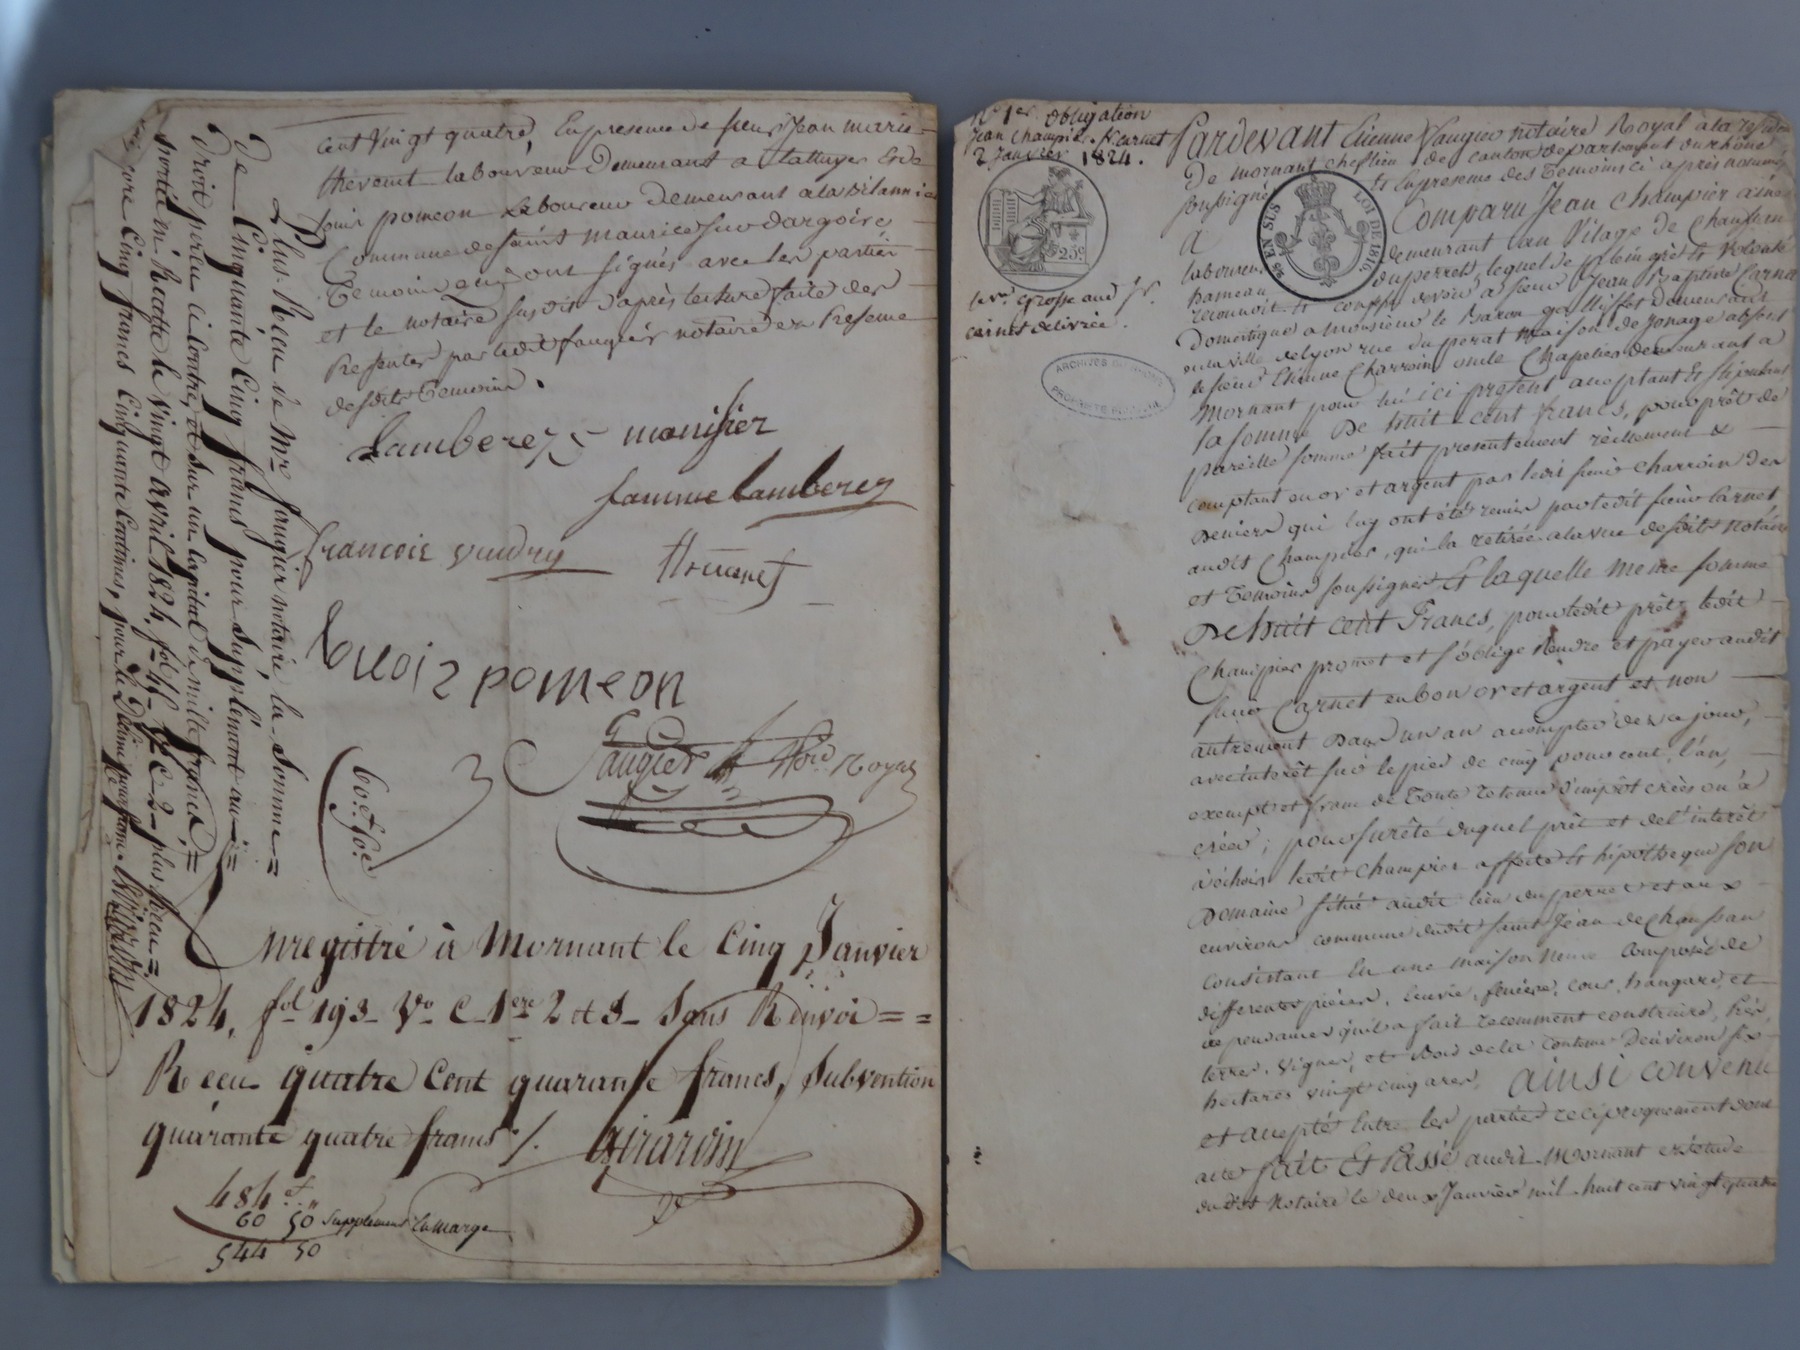 cent vingt quatre, En presence de sieurs Jean marie
thevenet laboureur Demeurant a Lattuyer Et de
louis pomeon Laboureur demeurant a la
Commune de saint maurice sur dargoire
Temoins qui ont signés avec les parties
et le notaire susdit D'après lecture faite des
Presentes par ledit faugier notaire En Presence
desdits Temoins.
Lamberez monisier
famme lamberez
francois vindry
thevenet
louis pomeon
Faugier Nore Royal
60 f 50 c
Enregistré à Mornant le Cinq Janvier
1824, fol 193 Vo C 1ere 2 et 3 Sans Renvoi = =
Reçu quatre Cent quarante francs, Subvention
quarante quatre francs ./. Girardin
484 f "
60 50 Supplement En marge
544 50
Plus Reçu de Mr faugier notaire la Somme =
De Cinquante Cinq francs pour Supplément au =
Droit perçu Ci Contre, et Sur un Capital de mille francs, =
porté en Recette le Vingt avril 1824, fol 45 Vo C 2 plus Reçu =
Encore Cinq francs Cinquante Centimes, pour le Dixme pour franc. Girardin
No 1er Obligation
Jean Champier. A. Carnet
2 Janvier 1824.
25c
25 EN SUS
LOI DE 1816
1ere Grosse aud Sr.
Carnet délivrée.
ARCHIVES DU RHÔNE
PROPRIÉTÉ PUBLIQUE
Pardevant Etienne Faugier notaire Royal à la résidence
De mornant chef lieu de canton departement du rhône
soussigné Et En presence des Temoins ci après nommés
A Comparu Jean Champier ainé
laboureur demeurant au Vilage de Chaussan
hameau du perret, lequel de plein gré et Volonté
reconnoit et confesse devoir a sieur Jean Baptiste Carnet
Domestique a monsieur le Baron galliffet Demeurant
en la Ville de lyon rue du perat Maison de Jonage absent
le sieur Etienne Charroin oncle Chapelier demeurant a
Mornant pour lui ici présent acceptant Et stipulant
la somme De huit cent francs, pour prêt de
pareille somme fait presentement réellement &
comptant en or et argent par ledit sieur Charroin des
Deniers qui luy ont été remis par ledit sieur Carnet
audit Champier, qui la retirée a la vue desdits Notaire
et Temoins soussignés Et laquelle meme somme
De huit cent Francs, pour ledit prêt, ledit
Champier promet et s'oblige Rendre et payer audit
sieur Carnet en bon or et argent et non
autrement Dans un an a compter de ce jour,
avec intérêt sur le pied de cinq pour cent l'an,
exempt et franc de Toute retenue d'impôt créés ou à
créer; pour sureté duquel prêt et de l'intérêt
à échoir ledit Champier affecte et hipotheque son
Domaine situé audit lieu du perret et aux
environs commune dudit saint Jean de Chaussan
Consistant En une maison neuve Composée de
differentes pièces, Ecurie, feniére, cour, hangard, et
dependances qu'il a fait recemment construire, Prés,
terres, vignes, et Bois de la Contenue D'environ six
hectares vingt cinq ares. AINSI CONVENU
et accepté Entre les parties reciproquement dont
acte FAIT ET Passé audit Mornant Et étude
dudit Notaire le deux Janvier mil huit cent vingt quatre